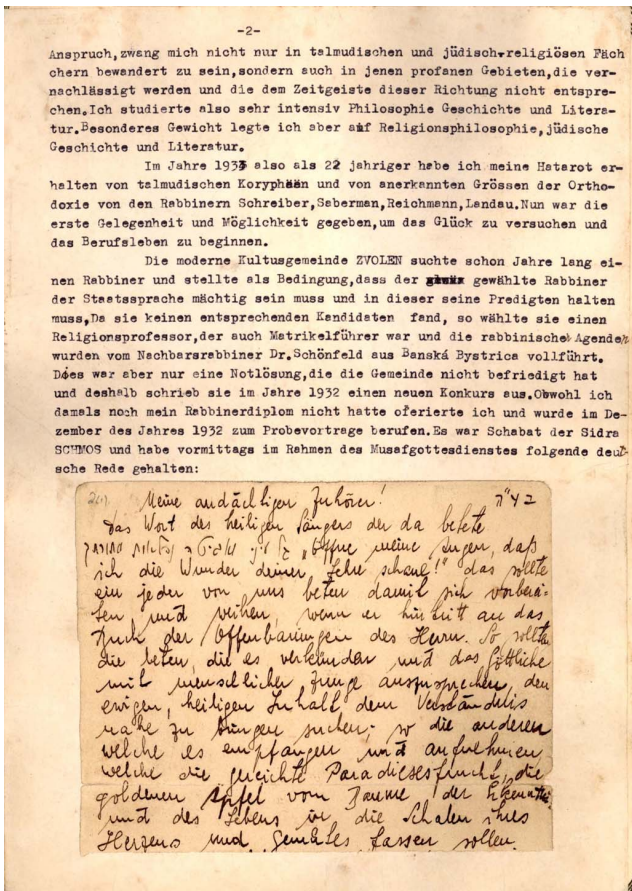 -2-
Anspruch,zwang mich nicht nur in talmudischen und jüdisch-religiösen Fäch
chern bewandert zu sein,sondern auch in jenen profanen Gebieten,die ver-
nachlässigt werden und die dem Zeitgeiste dieser Richtung nicht entspre-
chen.Ich studierte also sehr intensiv Philosophie Geschichte und Litera-
tur.Besonderes Gewicht legte ich aber auf Religionsphilosophie,jüdische
Geschichte und Literatur.
Im Jahre 1933 also als 22 jahriger habe ich meine Hatarot er-
halten von talmudischen Koryphäen und von anerkannten Grössen der Ortho-
doxie von den Rabbinern Schreiber,Saberman,Reichmann,Landau.Nun war die
erste Gelegenheit und Möglichkeit gegeben,um das Glück zu versuchen und
das Berufsleben zu beginnen.
Die moderne Kultusgemeinde ZVOLEN suchte schon Jahre lang ei-
nen Rabbiner und stellte als Bedingung,dass der gewählte Rabbiner
der Staatssprache mächtig sein muss und in dieser seine Predigten halten
muss,Da sie keinen entsprechenden Kandidaten fand, so wählte sie einen
Religionsprofessor,der auch Matrikelführer war und die rabbinische Agenden
wurden vom Nachbarsrabbiner Dr.Schönfeld aus Banská Bystrica vollführt.
Dies war aber nur eine Notlösung,die die Gemeinde nicht befriedigt hat
und deshalb schrieb sie im Jahre 1932 einen neuen Konkurs aus.Obwohl ich
damals noch mein Rabbinerdiplom nicht hatte oferierte ich und wurde im De-
zember des Jahres 1932 zum Probevortrage berufen.Es war Schabat der Sidra
SCHMOS und habe vormittags im Rahmen des Musafgottesdienstes folgende deut-
sche Rede gehalten:
Meine andächtigen Zuhörer!
Das Wort des heiligen Sängers der da betete
"Öffne meine Augen, daß
ich die Wunder deiner Lehre schaue!" das sollte
ein jeder von uns beten damit sich vorberei-
ten, und weihen, wenn er hintritt an das
Buch der Offenbarungen des Herrn. So sollten
die beten, die es verkünden und das göttliche
mit menschlicher Zunge aussprechen, den
ewigen, heiligen Inhalt dem Verständnis
nahe zu bringen suchen; so die anderen
welche es empfangen und aufnehmen
welche die gereichte Paradiesesfrucht, die
goldenen Äpfel vom Baume der
und des Lebens in die Schalen ihres
Herzens und Gemütes fassen sollen.